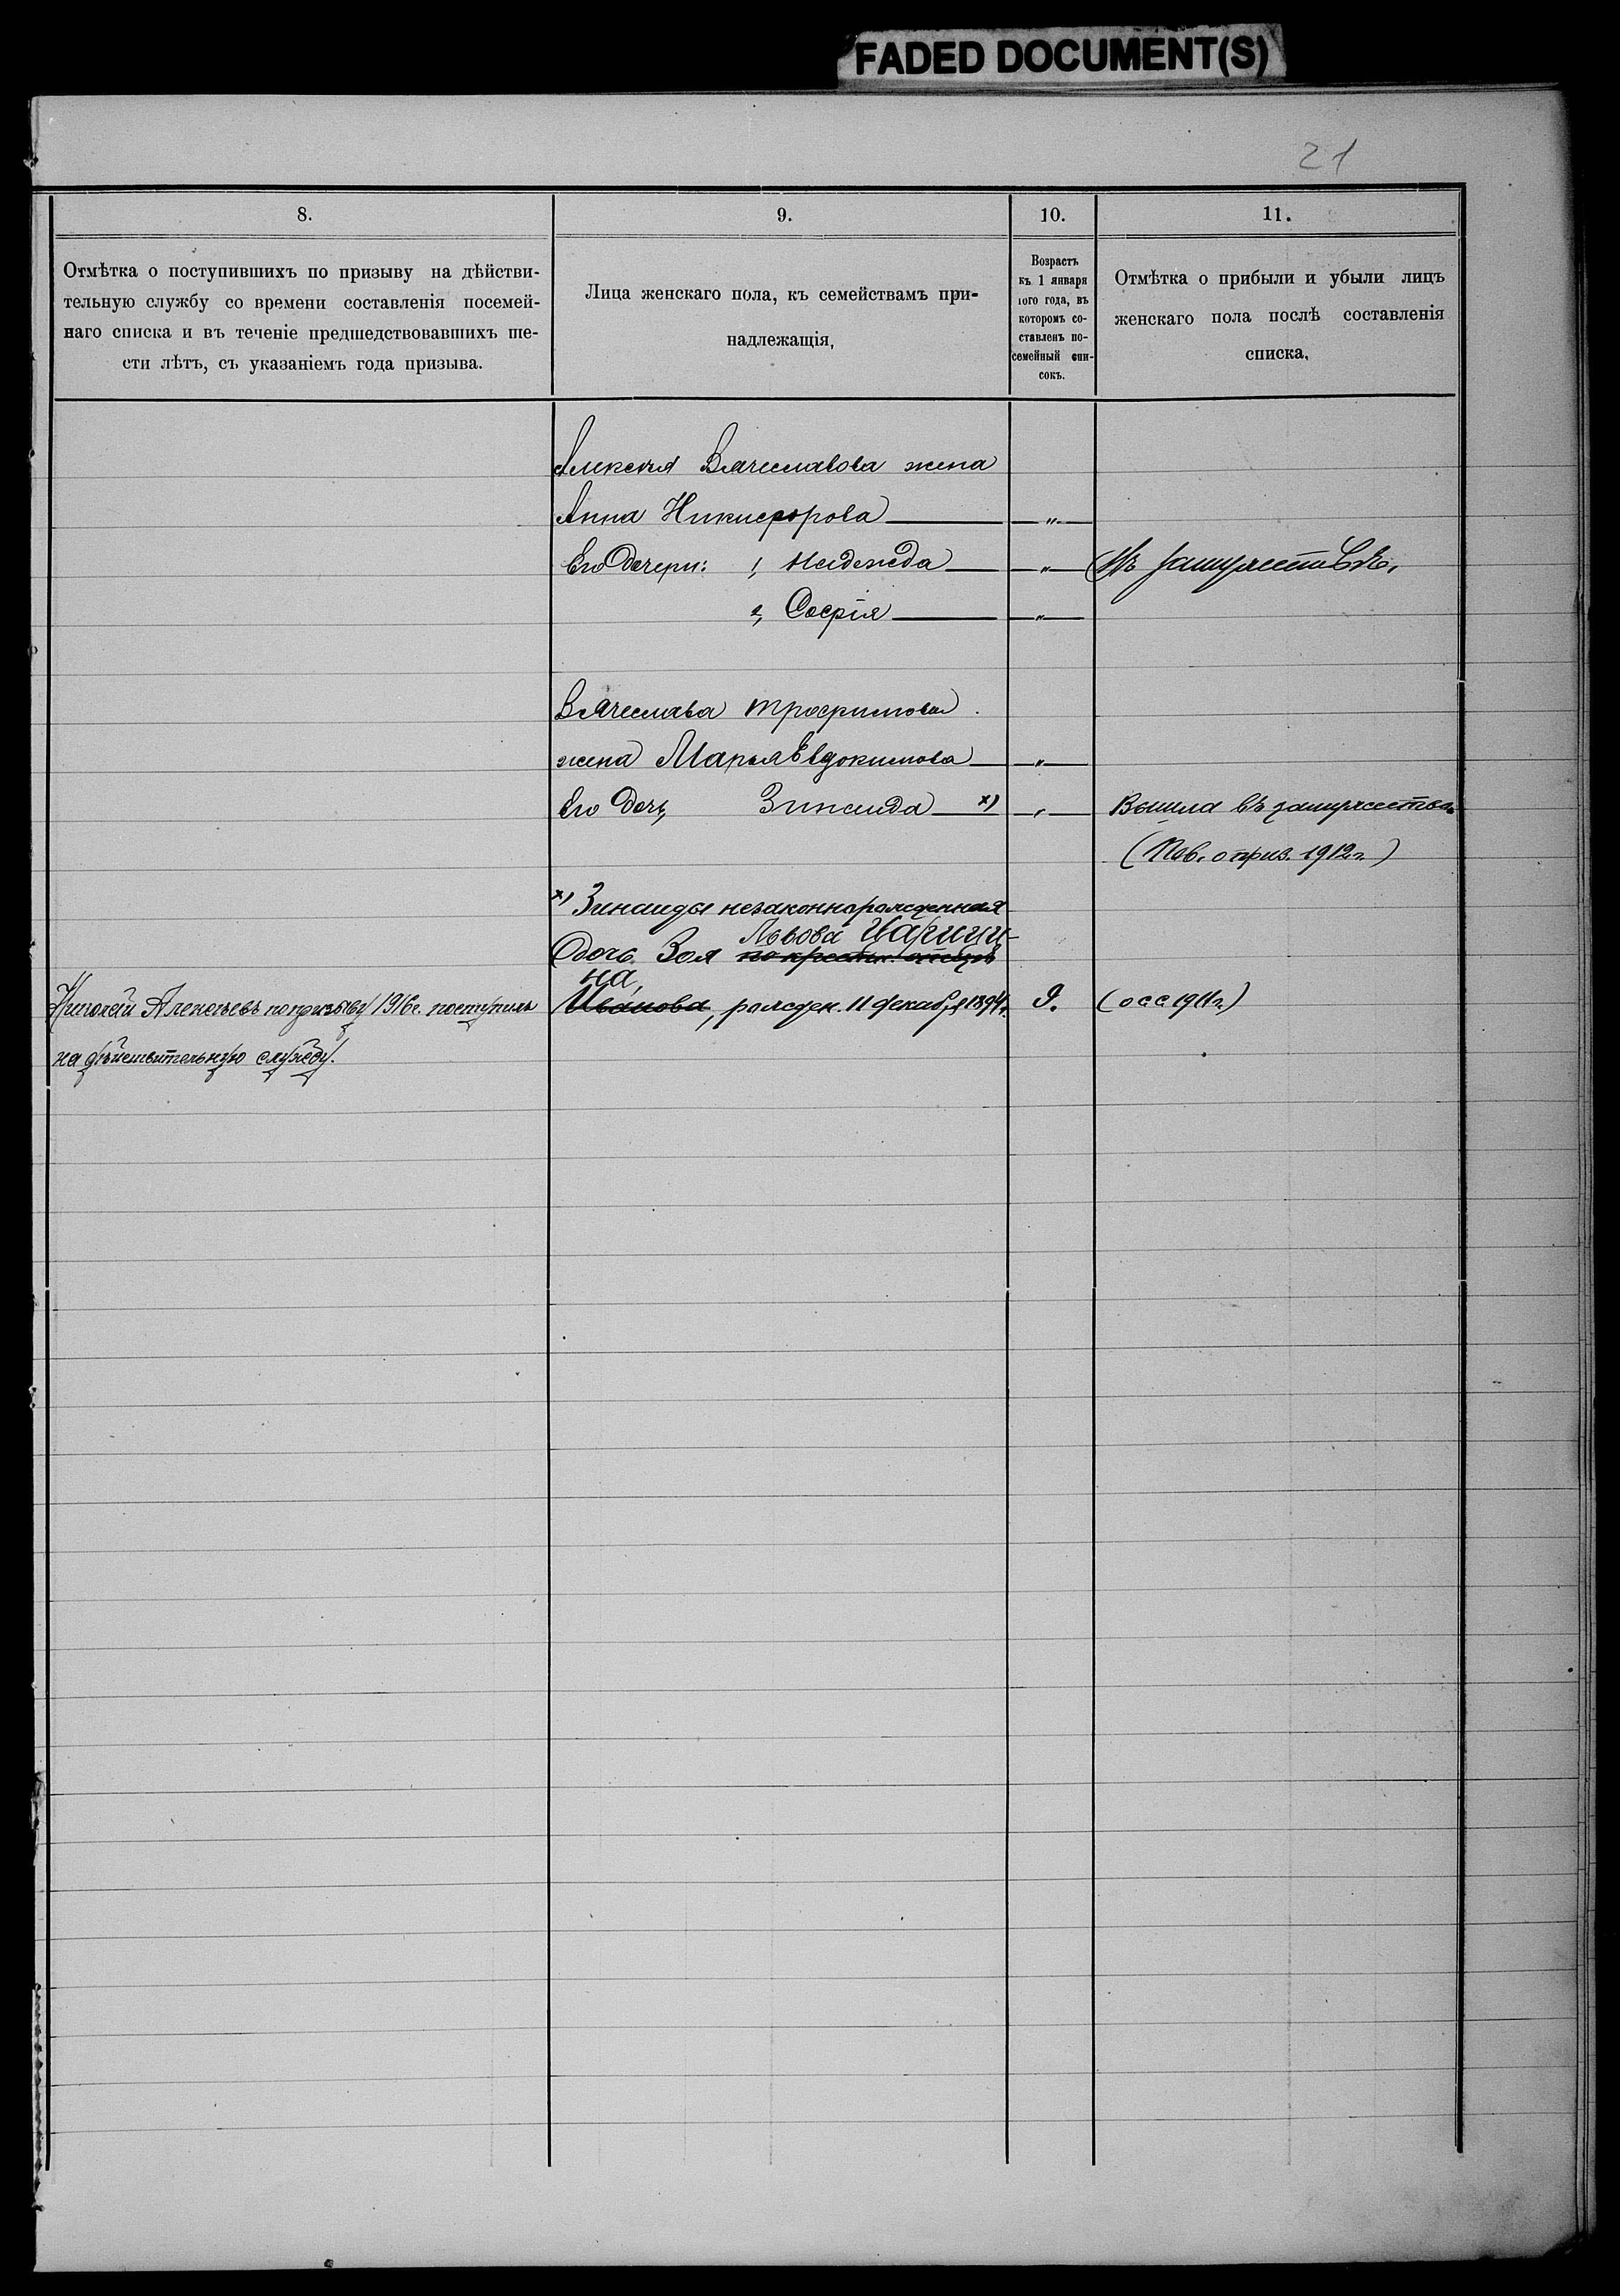 FADED DOCUMENT(S)
21
8.
9.
10.
11.
Отмѣтка о поступившихъ по призыву на дѣйстви-
тельную службу со времени составленія посемей-
наго списка и въ теченіе предшедствовавшихъ ше-
сти лѣтъ, съ указаніемъ года призыва.
Лица женскаго пола, къ семействамъ при-
надлежащія,
Возрастъ
къ 1 января
того года, въ
которомъ со-
ставленъ по-
семейный спи-
сокъ.
Отмѣтка о прибыли и убыли лицъ
женскаго пола послѣ составленія
списка,
Алексѣя Вячеславова жена
Анна Никифорова — „ —
Его дочери: 1, Надежда — „ — Въ замужествѣ,
2, Софія — „ —
Вячеслава Трофимова
жена Марья Евдокимова — „ —
Его дочь, Зинаида — х) — „ — Вышла въ замужество
(Пов. о приз. 1912 г.)
х) Зинаиды незаконнорожденная
Львова Царици-
дочь Зоя по крестн. отцу
на,
Николай Алексѣевъ по призыву 1916 г. поступилъ
Иванова, рожден. 11 декабря 1894 г. 9. (осс 1911 г.)
на дѣйствительную службу.